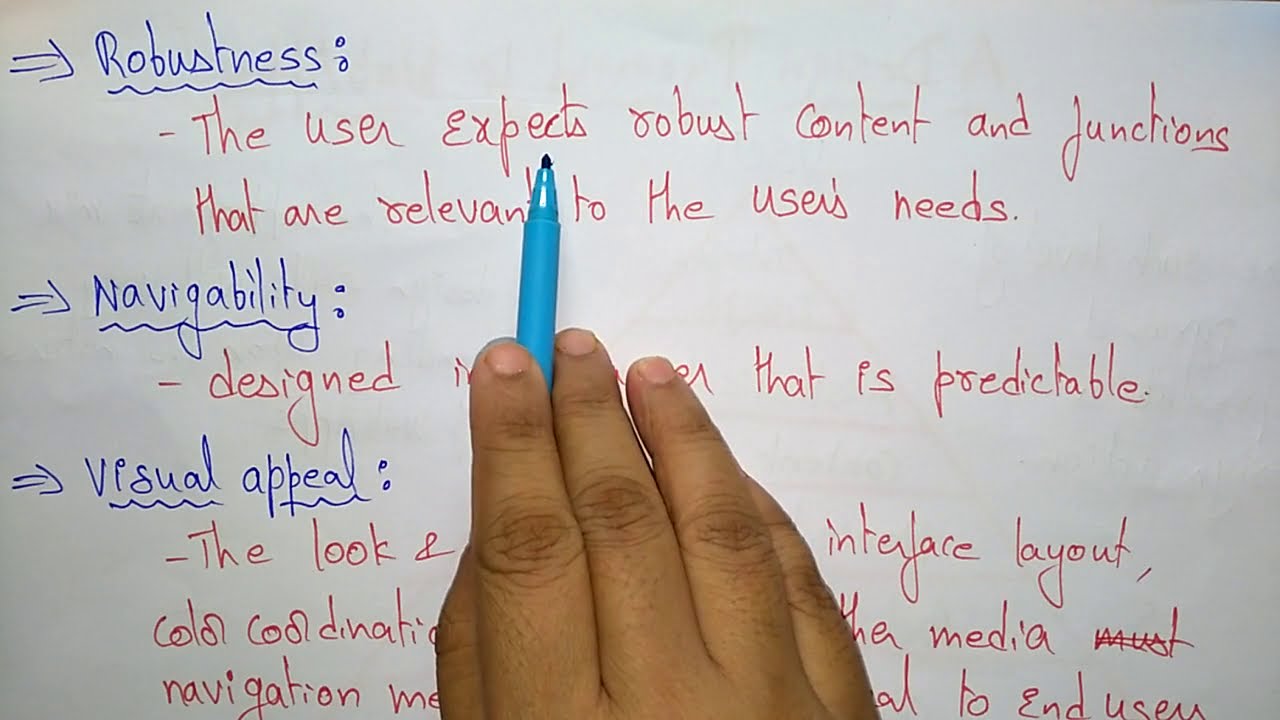 ⇒ Robustness:
- The user expects robust content and functions
that are relevant to the user's needs.
⇒ Navigability:
- designed in that is predictable.
⇒ Visual appeal:
- The look & interface layout,
color media must
navigation to End users